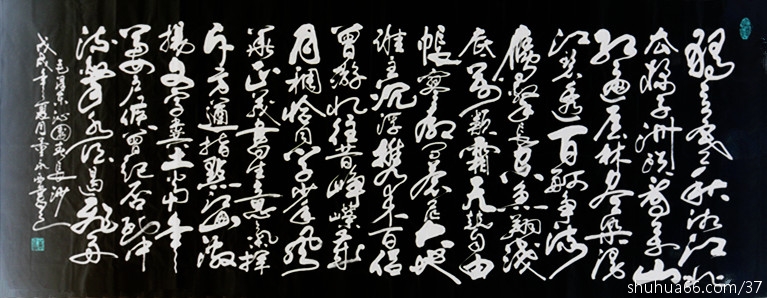 独立寒秋湘江北
去橘子洲头看万山
红遍层林尽染漫
江碧透百舸争流
鹰击长空鱼翔浅
底万类霜天竞自由
怅寥廓问苍茫大地
谁主沉浮携来百侣
曾游忆往昔峥嵘岁
月稠恰同学少年风
华正茂书生意气挥
斥方遒指点江山激
扬文字粪土当年
万户侯曾记否到中
流击水浪遏飞舟
毛泽东沁园春长沙
戊戌年夏月
shuhua66.com/37